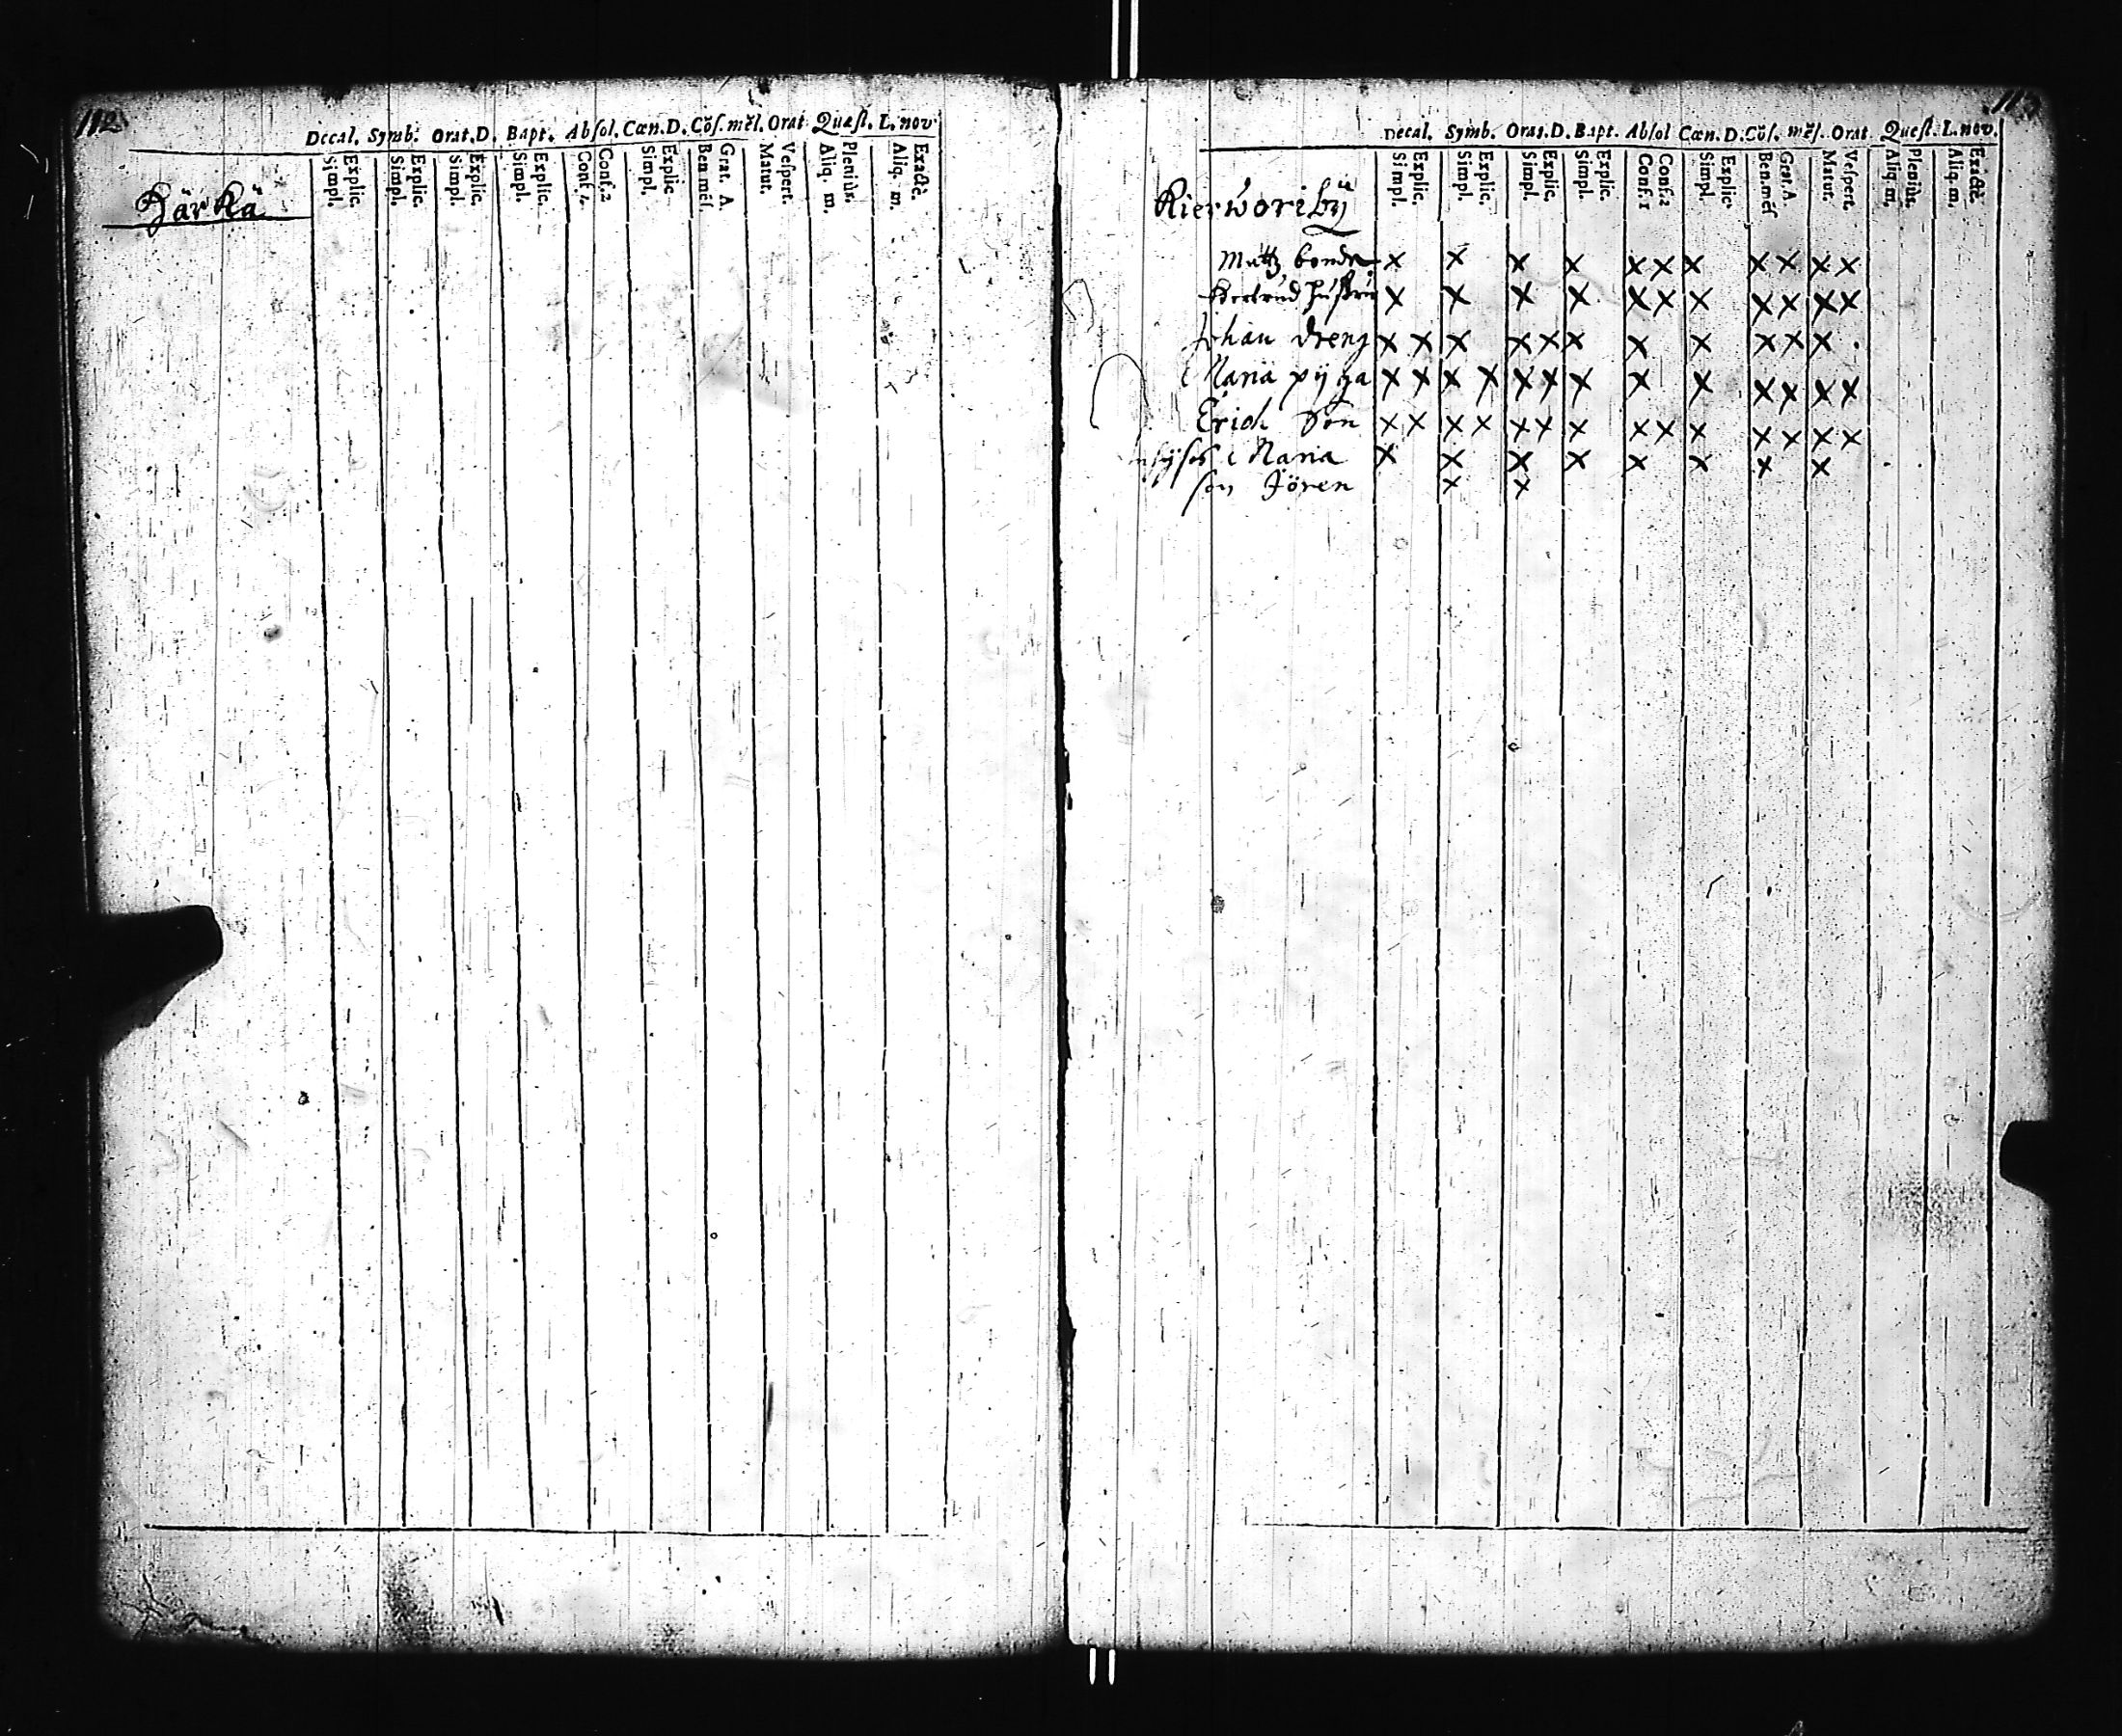 112
Decal. Symb. Orat. D. Bapt. Absol. Cœn. D. Cõf. mẽs. Orat. Quæst. L. nov.
Simpl. Explic. Simpl. Explic. Simpl. Explic. Simpl. Explic. Conf. 1. Conf. 2 Simpl. Explic. Ben. mẽs. Grat. A. Matut. Vespert. Aliq. m. Pleniùs. Aliq. m. Exactè.
Härkä
113
Decal. Symb. Orat. D. Bapt. Absol Cœn. D. Cõf. mẽs. Orat. Quæst. L. nov.
Simpl. Explic. Simpl. Explic. Simpl. Explic. Simpl. Explic. Conf. 1 Conf. 2 Simpl. Explic. Ben. mẽs Grat. A. Matut. Vespert. Aliq. m. Pleniùs. Aliq. m. Exactè.
Kierworibÿ
Matz bonde x x x x x x x x x x x
hustru x x x x x x x x x x x
Johan dreng x x x x x x x x x x x
Maria pÿga x x x x x x x x x x x x x
Erich Son x x x x x x x x x x x x x x
Maria x x x x x x x x
son Jören x x